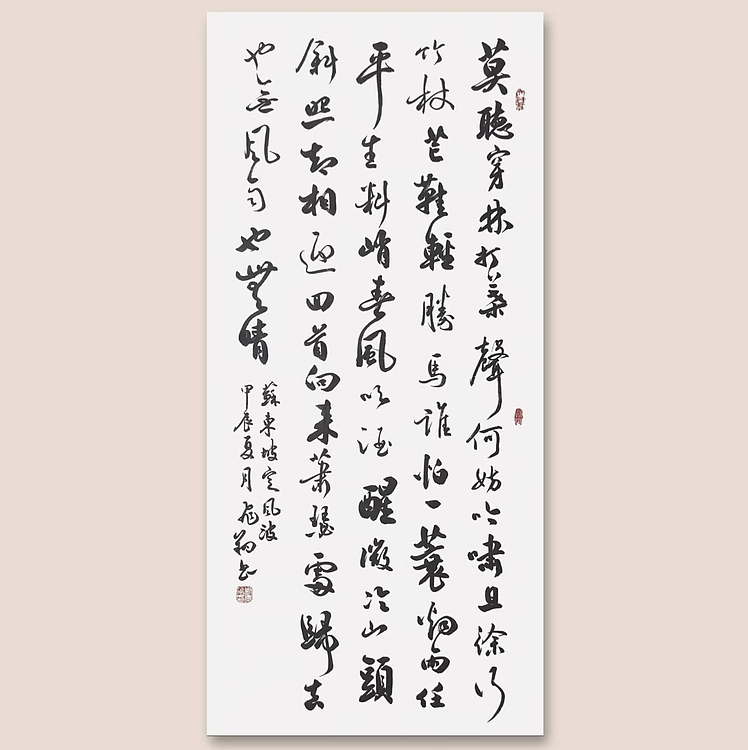 莫聽穿林打葉聲何妨吟嘯且徐行
竹杖芒鞋輕勝馬誰怕一蓑烟雨任
平生料峭春風吹酒醒微冷山頭
斜照却相迎回首向来蕭瑟處歸去
也无风雨也無晴
蘇東坡定風波
甲辰夏月翔书